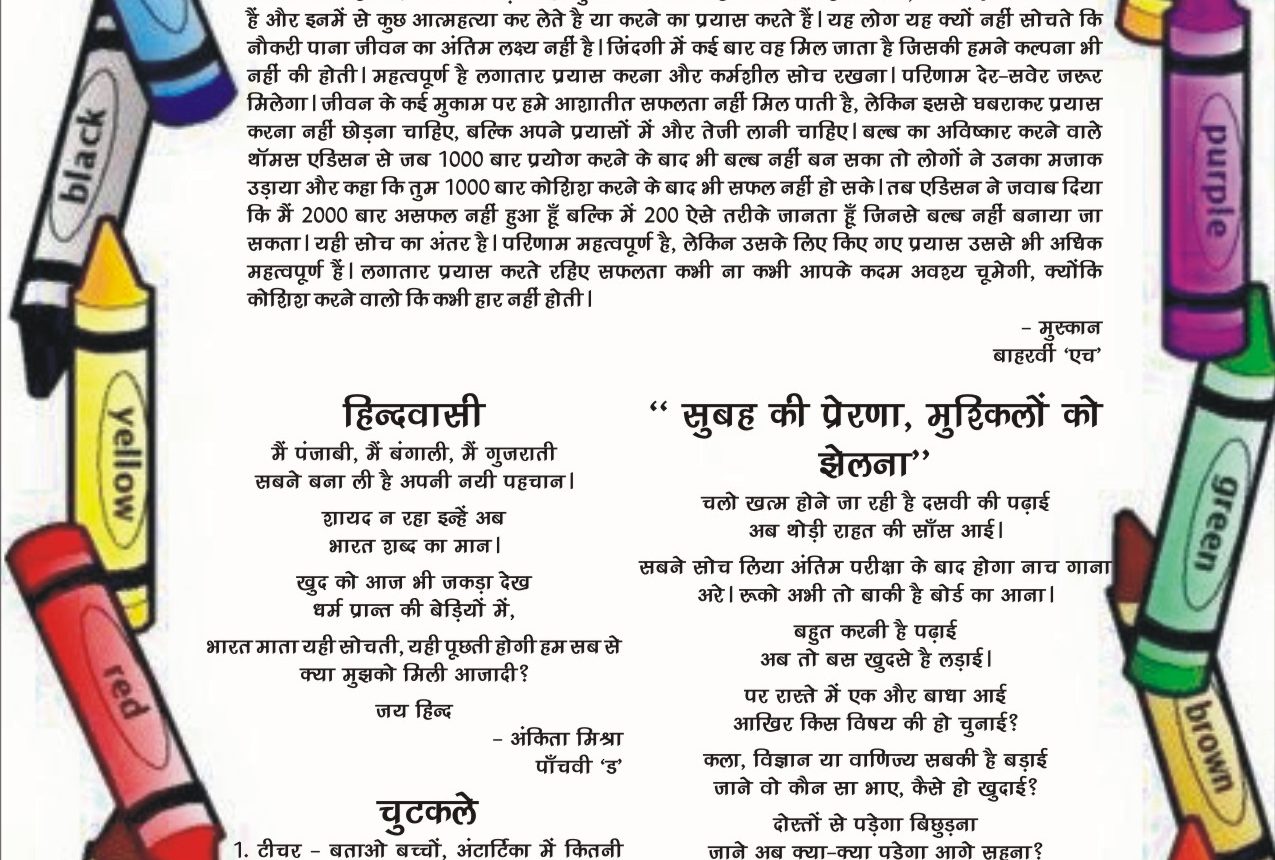 हैं और इनमें से कुछ आत्महत्या कर लेते है या करने का प्रयास करते हैं। यह लोग यह क्यों नहीं सोचते कि
नौकरी पाना जीवन का अंतिम लक्ष्य नहीं है। जिंदगी में कई बार वह मिल जाता है जिसकी हमने कल्पना भी
नहीं की होती। महत्वपूर्ण है लगातार प्रयास करना और कर्मशील सोच रखना। परिणाम देर-सवेर जरूर
मिलेगा। जीवन के कई मुकाम पर हमे आशातीत सफलता नहीं मिल पाती है, लेकिन इससे घबराकर प्रयास
करना नहीं छोड़ना चाहिए, बल्कि अपने प्रयासों में और तेजी लानी चाहिए। बल्ब का अविष्कार करने वाले
थॉमस एडिसन से जब 1000 बार प्रयोग करने के बाद भी बल्ब नहीं बन सका तो लोगों ने उनका मजाक
उड़ाया और कहा कि तुम 1000 बार कोशिश करने के बाद भी सफल नहीं हो सके। तब एडिसन ने जवाब दिया
कि मैं 2000 बार असफल नहीं हुआ हूँ बल्कि में 200 ऐसे तरीके जानता हूँ जिनसे बल्ब नहीं बनाया जा
सकता। यही सोच का अंतर है। परिणाम महत्वपूर्ण है, लेकिन उसके लिए किए गए प्रयास उससे भी अधिक
महत्वपूर्ण हैं। लगातार प्रयास करते रहिए सफलता कभी ना कभी आपके कदम अवश्य चूमेगी, क्योंकि
कोशिश करने वालो कि कभी हार नहीं होती।
- मुस्कान
बाहरवीं ‘एच’
हिन्दवासी
मैं पंजाबी, मैं बंगाली, मैं गुजराती
सबने बना ली है अपनी नयी पहचान।
शायद न रहा इन्हें अब
भारत शब्द का मान।
खुद को आज भी जकड़ा देख
धर्म प्रान्त की बेड़ियों में,
भारत माता यही सोचती, यही पूछती होगी हम सब से
क्या मुझको मिली आजादी?
जय हिन्द
- अंकिता मिश्रा
पाँचवी ‘ड’
चुटकले
1. टीचर - बताओ बच्चों, अंटार्टिका में कितनी
“ सुबह की प्रेरणा, मुश्किलों को
झेलना”
चलो खत्म होने जा रही है दसवी की पढ़ाई
अब थोड़ी राहत की साँस आई।
सबने सोच लिया अंतिम परीक्षा के बाद होगा नाच गाना
अरे। रूको अभी तो बाकी है बोर्ड का आना।
बहुत करनी है पढ़ाई
अब तो बस खुदसे है लड़ाई।
पर रास्ते में एक और बाधा आई
आखिर किस विषय की हो चुनाई?
कला, विज्ञान या वाणिज्य सबकी है बड़ाई
जाने वो कौन सा भाए, कैसे हो खुदाई?
दोस्तों से पड़ेगा बिछुड़ना
जाने अब क्या-क्या पड़ेगा आगे सहना?
black
yellow
red
purple
green
brown